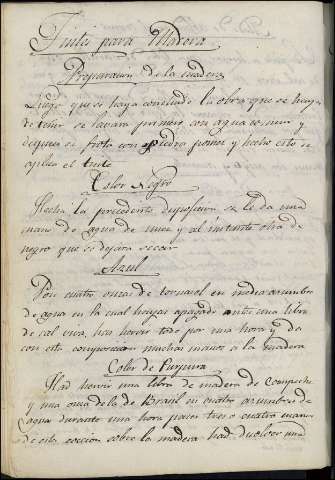 Tintes para Madera
Preparacion de la madera
Luego que se haya concluido la obra que se haya
de teñir se lavara primero con agua comun y
despues se frota con piedra pomez y hecho esto se
aplica el tinte
Color Negro
Hecha la precedente disposicion se le da una
mano de agua de nuez y al instante otra de
negro que se dejara secar
Azul
Pon cuatro onzas de tornasol en media azumbre
de agua en la cual hayas apagado antes una libra
de cal viva, haz hervir todo por una hora y da
con esta composicion muchas manos a la madera
Color de Purpura
Haz hervir una libra de madera de Campeche
y una onza de la de Brasil en cuatro azumbres de
agua durante una hora pasar tres o cuatro manos
de esta coccion sobre la madera haz disolver una